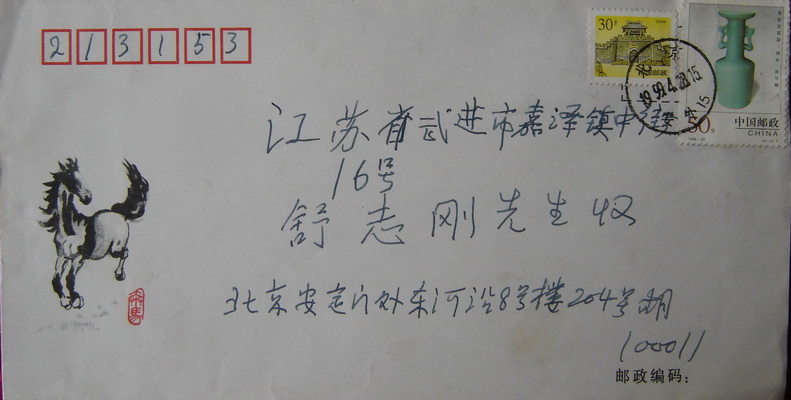 213153
30分
中国邮政
50分
CHINA
北京
1999.4.28.15
江苏省武进市嘉泽镇中街
16号
舒志刚先生收
北京安定门外东河沿8号楼204号胡
100011
邮政编码: